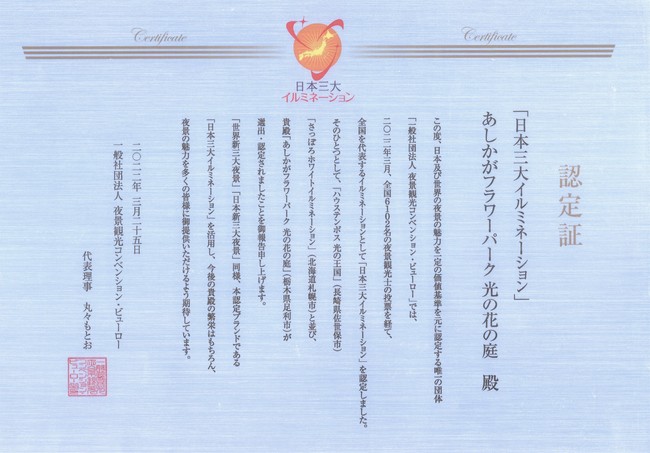 Certificate
Certificate
日本三大
イルミネーション
認定証
「日本三大イルミネーション」
あしかがフラワーパーク 光の花の庭 殿
この度、日本及び世界の夜景の魅力を一定の価値基準を元に認定する唯一の団体
「一般社団法人 夜景観光コンベンション・ビューロー」では、
二〇二二年三月、全国6102名の夜景観光士の投票を経て、
全国を代表するイルミネーションとして「日本三大イルミネーション」を認定しました。
そのひとつとして、「ハウステンボス 光の王国」（長崎県佐世保市）
「さっぽろホワイトイルミネーション」（北海道札幌市）と並び、
貴殿「あしかがフラワーパーク 光の花の庭」（栃木県足利市）が
選出・認定されましたことを御報告申し上げます。
「世界新三大夜景」「日本新三大夜景」同様、本認定ブランドである
「日本三大イルミネーション」を活用し、今後の貴殿の繁栄はもちろん、
夜景の魅力を多くの皆様に御提供いただけるよう期待しています。
二〇二二年 三月 二十五日
一般社団法人 夜景観光コンベンション・ビューロー
代表理事 丸々もとお